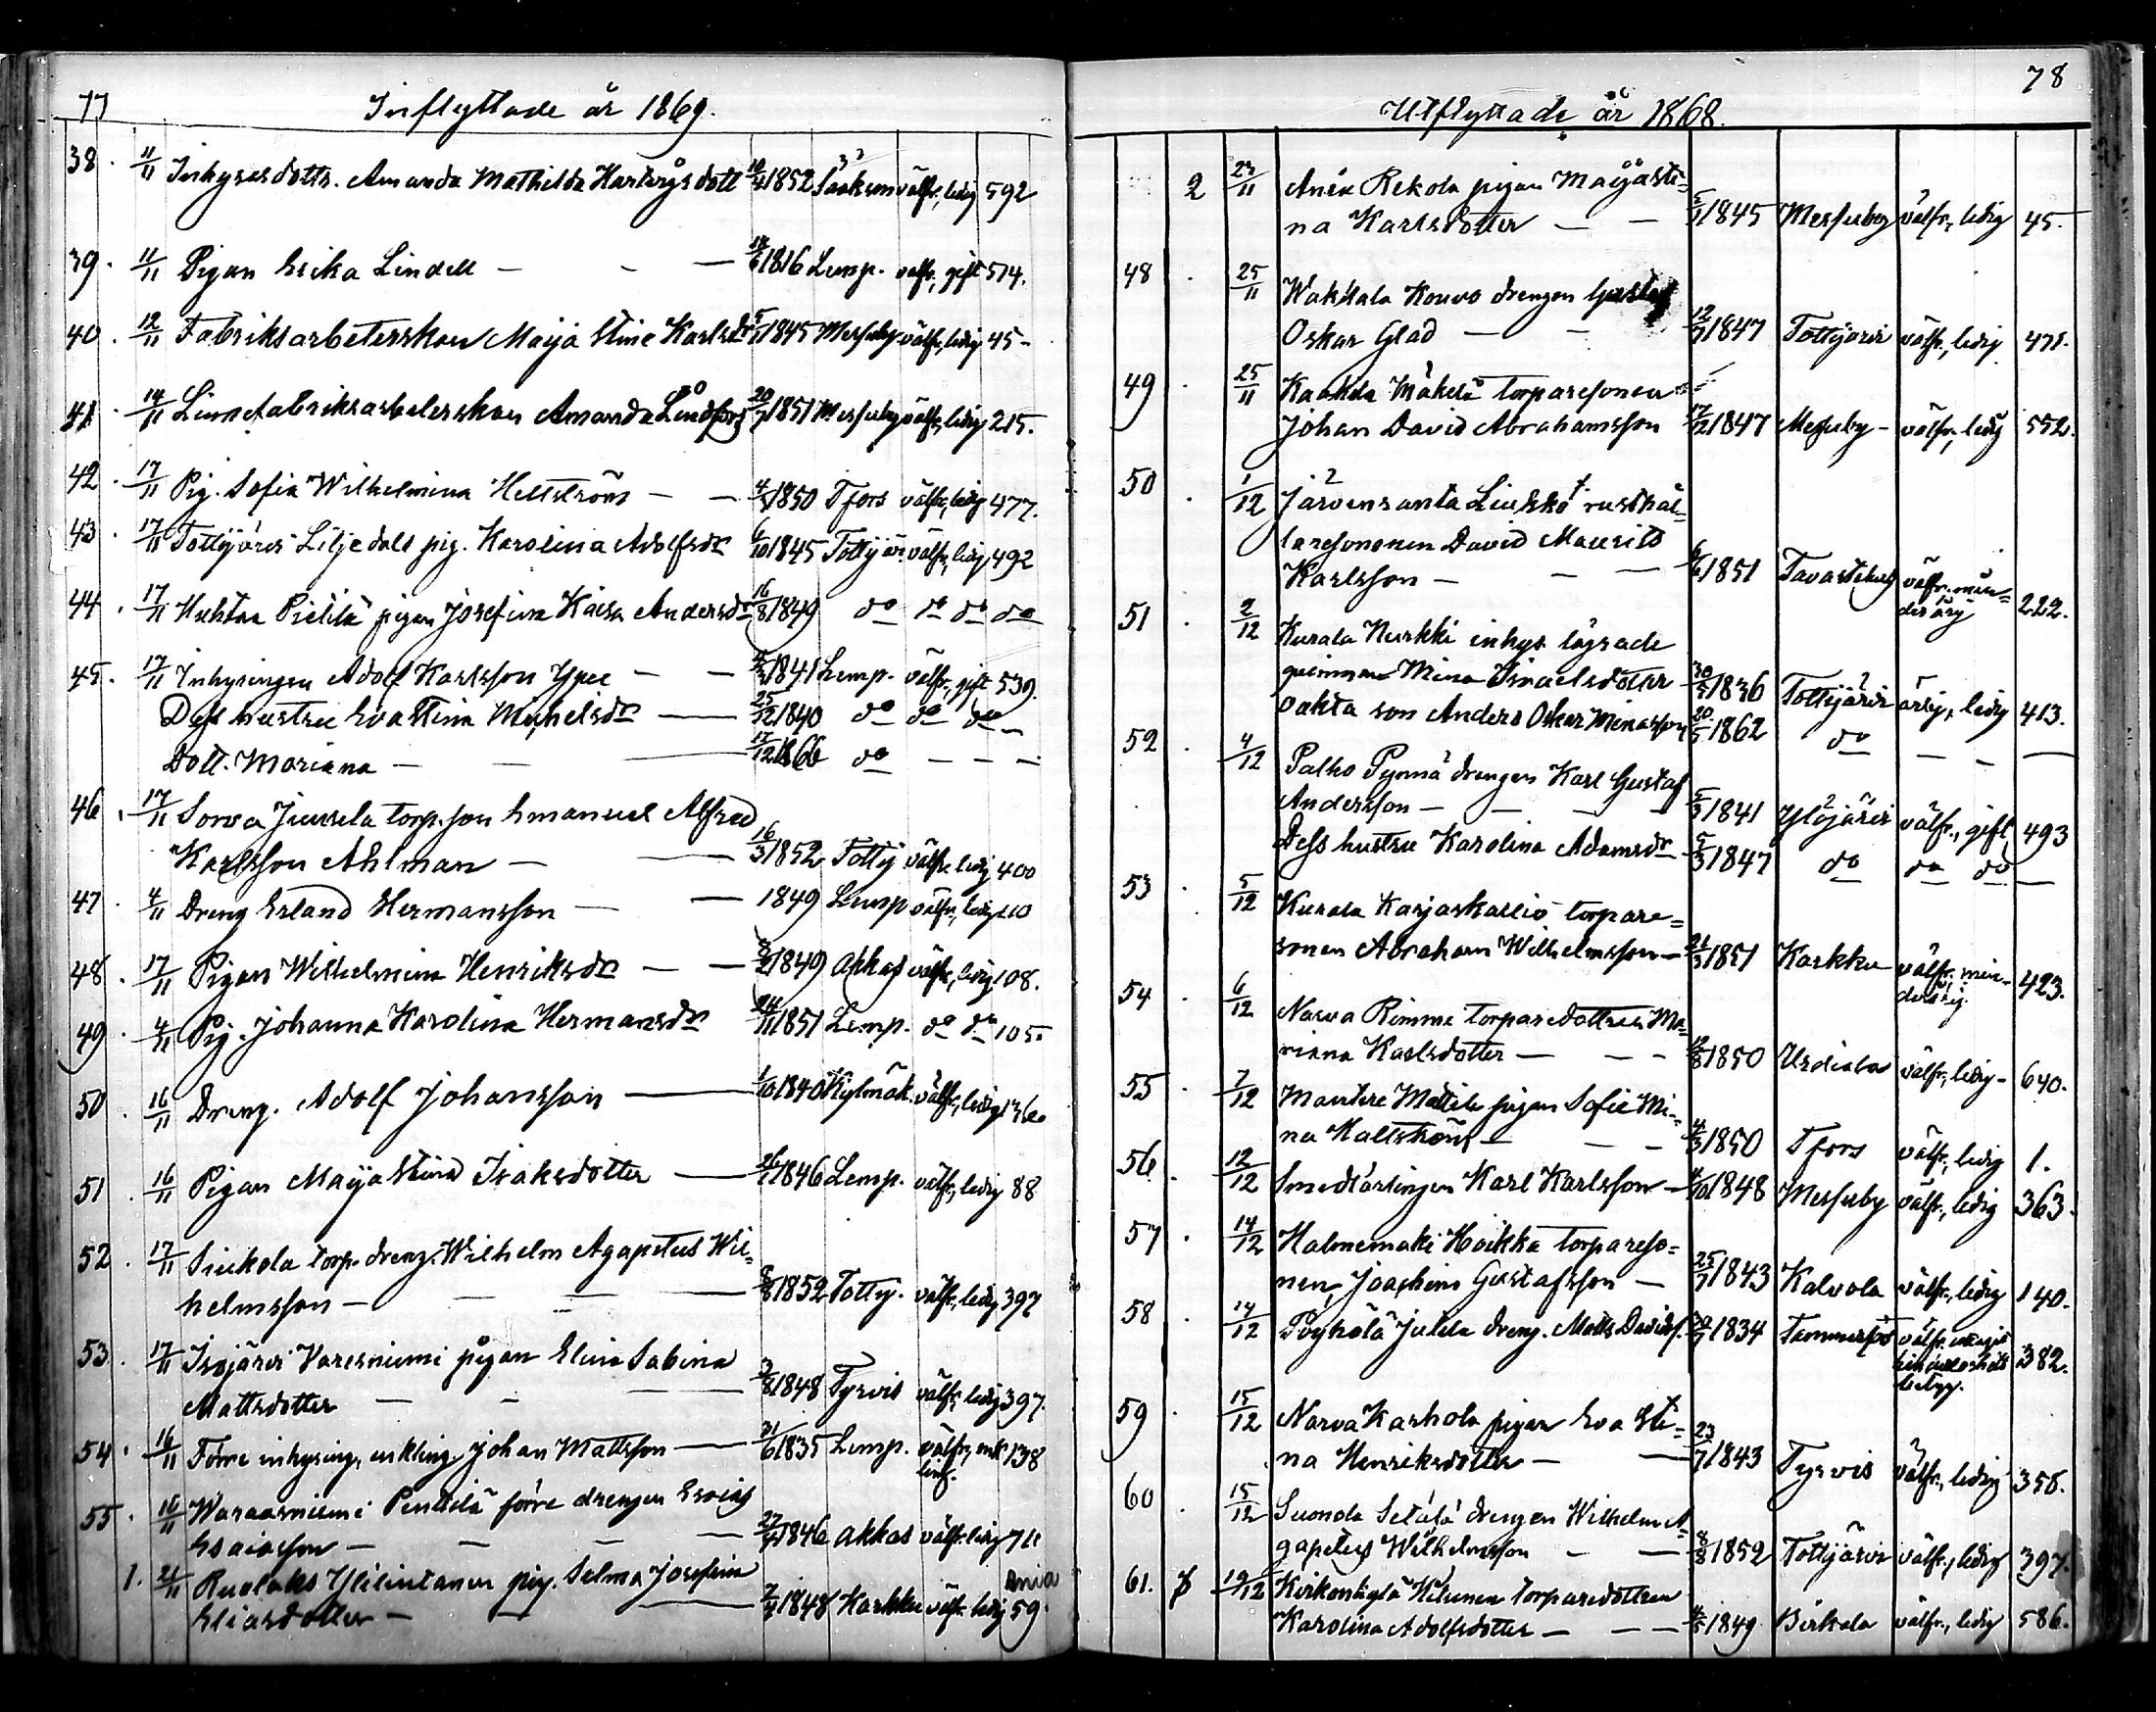 77 Inflyttade år 1869.
38. 11/11 Inhysesdottr. Amanda Mathilda Hartvigsdott 1852 Sääksm välfr., ledig 592
39. 11/11 Pigan Erika Lindell — 1816 Lemp. välfr., gift 514.
40. 12/11 Fabriksarbeterskan Maija Stina Karlsdr 5/7 1845 Messuby välfr., ledig 45 -
41. 14/11 Linnefabriksarbeterskan Amanda Lindfors 20/7 1851 Messuby välfr., ledig 215.
42. 17/11 Pig. Sofia Wilhelmina Hellström — 4/3 1850 Tfors välfr., ledig 477.
43. 17/11 Tottijärvi Liljedals pig. Karolina Adolfsdr 6/10 1845 Tottijär. välfr., ledig 492
44. 17/11 Huhtaa Pietilä pigan Josefina Kaisa Andersdr 16/8 1849 do do do do
45. 17/11 Inhysingen Adolf Karlsson Ypee — 1841 Lemp. välfr., gift 539.
Dess hustru Eva Stina Michelsdr — 25/12 1840 do do do
Dott. Mariana — 17/12 1866 do — — —
46. 17/11 Sorva Juusela torp. son Emanuel Alfred
Karlsson Ahlman — 16/3 1852 Tottij välfr., ledig 400
47. 4/11 Dreng Erland Hermansson — 1849 Lemp välfr., ledig 110
48. 17/11 Pigan Wilhelmina Henriksdr — 1849 Akkas välfr., ledig 108.
49. 4/11 Pig. Johanna Karolina Hermansdr 24/11 1851 Lemp. do do 105.
50. 16/11 Dreng. Adolf Johansson — 1/10 1840 Kylmäk. välfr., ledig 136.
51. 16/11 Pigan Maija Stina Isaksdotter — 1846 Lemp. välfr., ledig 88
52. 17/11 Siukola torp. dreng. Wilhelm Agapetus Wil-
helmsson — 8/8 1852 Tottij. välfr., ledig 397
53. 17/11 Isojärvi Varesniemi pigan Elina Sabina
Mattsdotter — 3/8 1848 Tyrvis välfr., ledig 397.
54. 16/11 Förre inhysing, enkling Johan Mattsson — 21/6 1835 Lemp. välfr., enkling. 138
55. 18/11 Waraarniemi Penttilä förre drengen Esaias
Esaiasson — 1846 Akkas välfr. ledig 71.
1. 21/11 Ruolaks Ylilintanen pig. Selma Josefina
Eliasdotter — 1848 Karkku välfr. ledig Ania 59.
78
Utflyttade år 1868.
2 23/11 Ania Rekola pigan Maijasti-
na Karlsdotter — 5/7 1845 Messuby välfr., ledig 45.
48. 25/11 Wakkala Kouvo drengen Gustaf
Oskar Glad — 12/7 1847 Tottijärvi välfr., ledig 471.
49. 25/11 Kaakila Mäkelä torparesonen
Johan David Abrahamsson 17/12 1847 Messuby - välfr., ledig 552.
50. 1/12 Järvensanta Liukko rusthål-
laresononen David Maurits
Karlsson — 6/6 1851 Tavastehus välfr. min-
derårig 222.
51. 2/12 Kurala Nurkki inhys. lägrade
quinnan Mina Ismaelsdotter 1836 Tottijärvi ärlig, ledig 413.
oäkta son Anders Oskar Minasson 20/5 1862 do — — —
52. 4/12 Palho Pynnä drengen Karl Gustaf
Andersson — 5/3 1841 Ylöjärvi välfr., gift, 493
Dess hustru Karolina Adamsdr 5/3 1847 do do do —
53. 5/12 Kurala Karjaskallio torpare-
sonen Abraham Wilhelmsson — 1851 Karkku välfr. min-
derårig. 423.
54. 6/12 Narva Rimme torparedottren Ma-
riana Karlsdotter — 1850 Urdiala välfr., ledig - 640.
55. 7/12 Mantere Mattila pigan Sofie Mi-
na Hallström — 4/3 1850 Tfors välfr., ledig 1.
56. 12/12 Smedlärlingen Karl Karlsson — 1848 Messuby välfr., ledig 363.
57. 14/12 Halmemäki Hoikka torpareso-
nen Joachim Gustafsson — 25/7 1843 Kalvola välfr., ledig 140.
58. 14/12 Pöyhölä Julla dreng. Matts Davids. 1834 Tammerfors välfr. 382.
59. 15/12 Narva Karhola pigan Eva Sti-
na Henriksdotter — 23/7 1843 Tyrvis välfr., ledig 358.
60. 15/12 Suonola Setälä drengen Wilhelm A-
gapetus Wilhelmsson — 8/8 1852 Tottijärvi välfr., ledig 397.
61. 19/12 Kirkonkylä torparedottren
Karolina Adolfsdotter — 1849 Birkala välfr., ledig 586.